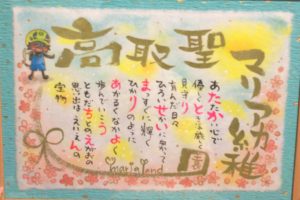 高取聖
マリア幼稚
園
あたたかい心で
優しくときに厳しく
見守り
育んだ日々
ひろいせかいに向かって
まっすぐに輝く
ひかりのように
あかるくなかよく
歩んでいこう
ともだちとのえがおの
思い出はえいえんの
宝物
maria land